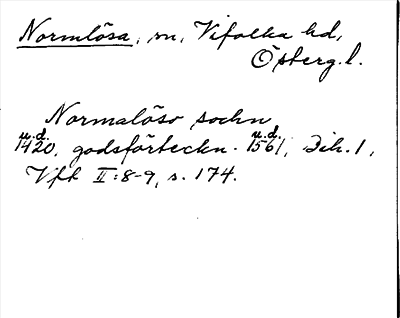 Normlösa, sn, Vifolka hd,
Österg. l.
Normalöso sochn
u.d. u.d.
1420, godsförteckn. 1561, Dik. 1,
Vfk II:8-9, s. 174.